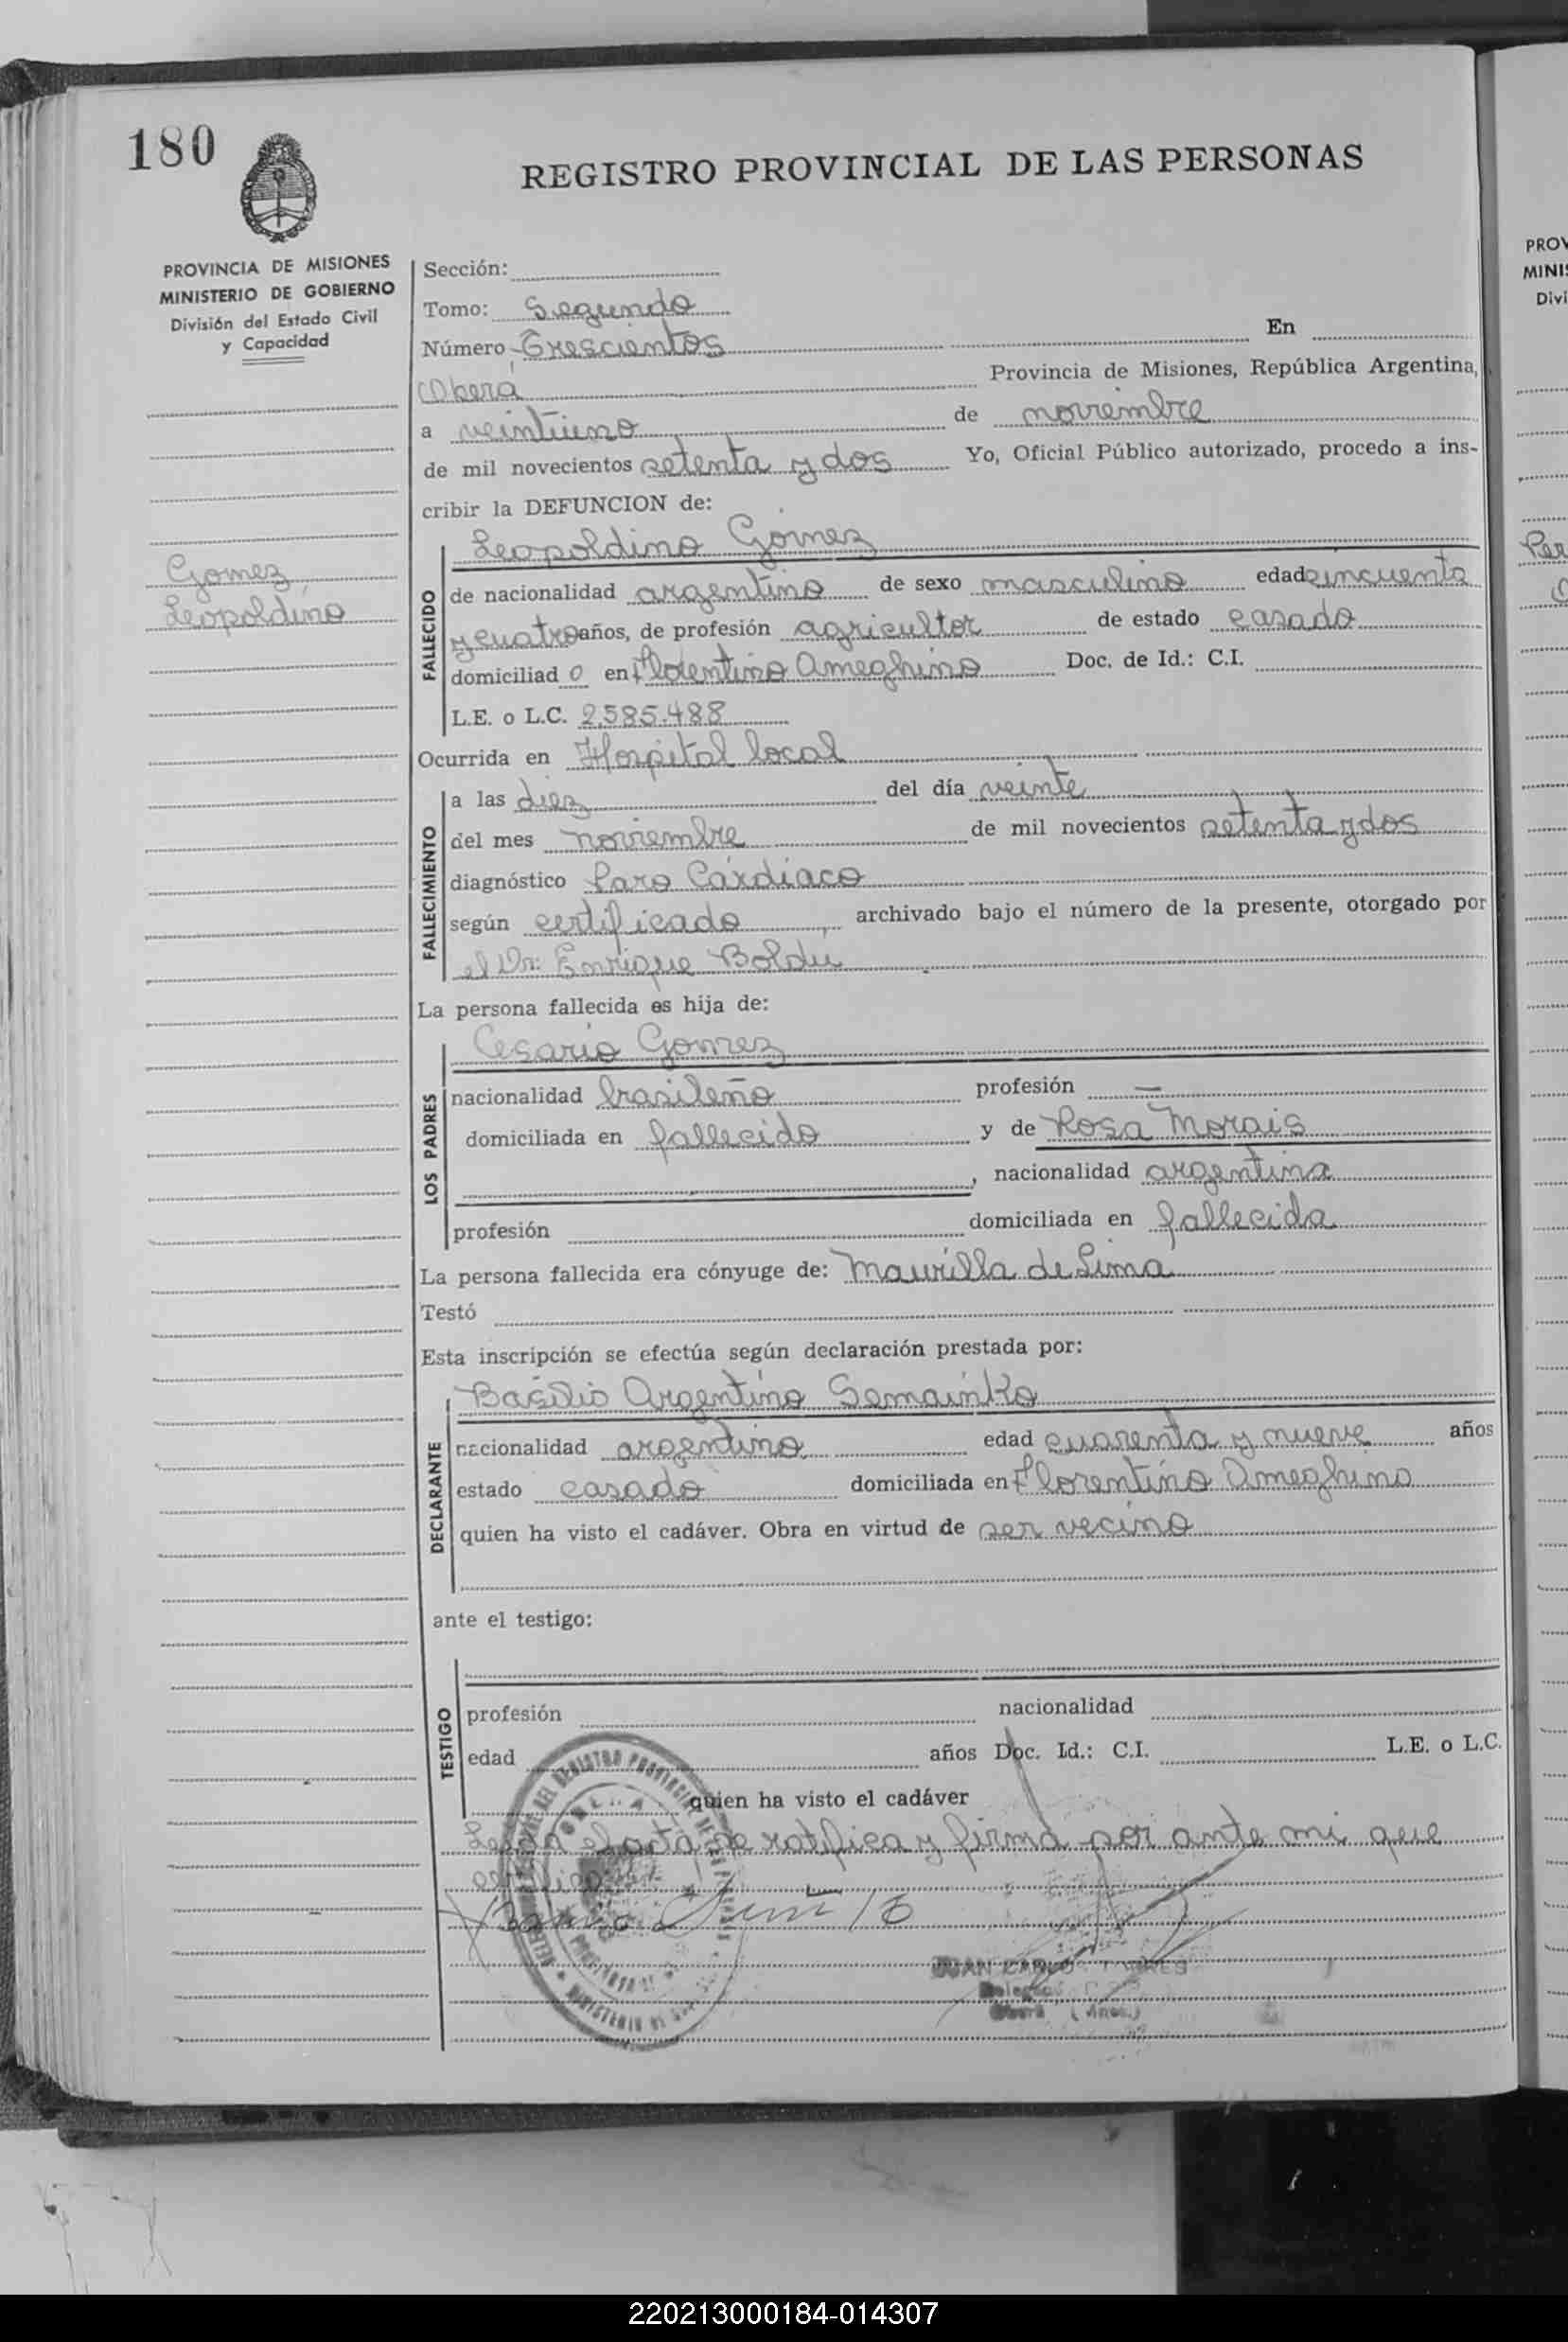 180
REGISTRO PROVINCIAL DE LAS PERSONAS
PROVINCIA DE MISIONES
MINISTERIO DE GOBIERNO
División del Estado Civil
y Capacidad
Gomez
Leopoldino
Sección:
Tomo: Segundo
Número Trescientos En
Oberá Provincia de Misiones, República Argentina,
a veintiuno de noviembre
de mil novecientos setenta y dos Yo, Oficial Público autorizado, procedo a ins-
cribir la DEFUNCION de:
FALLECIDO
Leopoldino Gómez
de nacionalidad argentino de sexo masculino edad cincuenta
y cuatro años, de profesión agricultor de estado casado
domiciliad o en Florentino Ameghino Doc. de Id.: C.I.
L.E. o L.C. 2.585.488
Ocurrida en Hospital local
FALLECIMIENTO
a las diez del día veinte
del mes noviembre de mil novecientos setenta y dos
diagnóstico Paro Cárdiaco
según certificado, archivado bajo el número de la presente, otorgado por
el Dr: Enrique Boldu
La persona fallecida es hija de:
LOS PADRES
Cesario Gomez
nacionalidad brasileño profesión —
domiciliada en fallecido y de Rosa Morais
, nacionalidad argentina
profesión domiciliada en fallecida
La persona fallecida era cónyuge de: Maurilla de Lima
Testó
Esta inscripción se efectúa según declaración prestada por:
DECLARANTE
Basilio Argentino Semainko
nacionalidad argentino edad cuarenta y nueve años
estado casado domiciliada en Florentino Ameghino
quien ha visto el cadáver. Obra en virtud de ser vecino
ante el testigo:
TESTIGO
profesión nacionalidad
edad años Doc. Id.: C.I. L.E. o L.C.
quien ha visto el cadáver
Leída el acta se ratifica y firma por ante mi que
JUAN CARLOS
Oberá
PROV
MINIS
Divi
Per
220213000184-014307